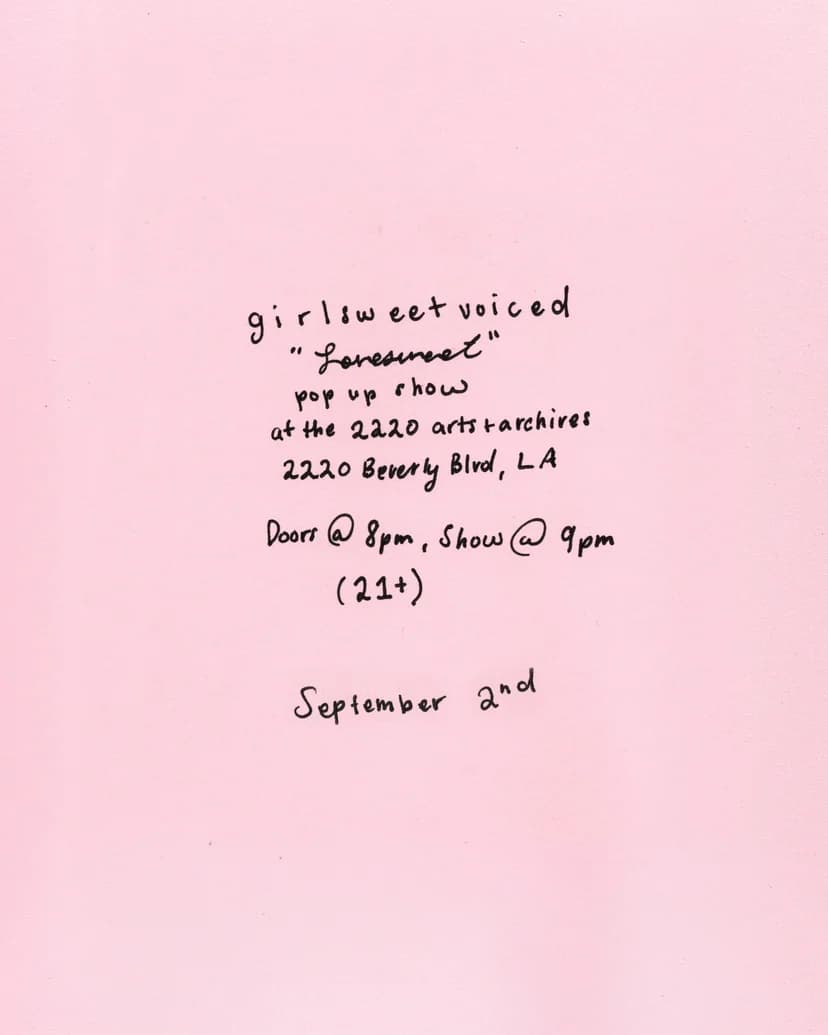 girlsweetvoiced
"Lovesweet"
pop up show
at the 2220 arts + archives
2220 Beverly Blvd, LA
Doors @ 8pm, Show @ 9pm
(21+)
September 2nd